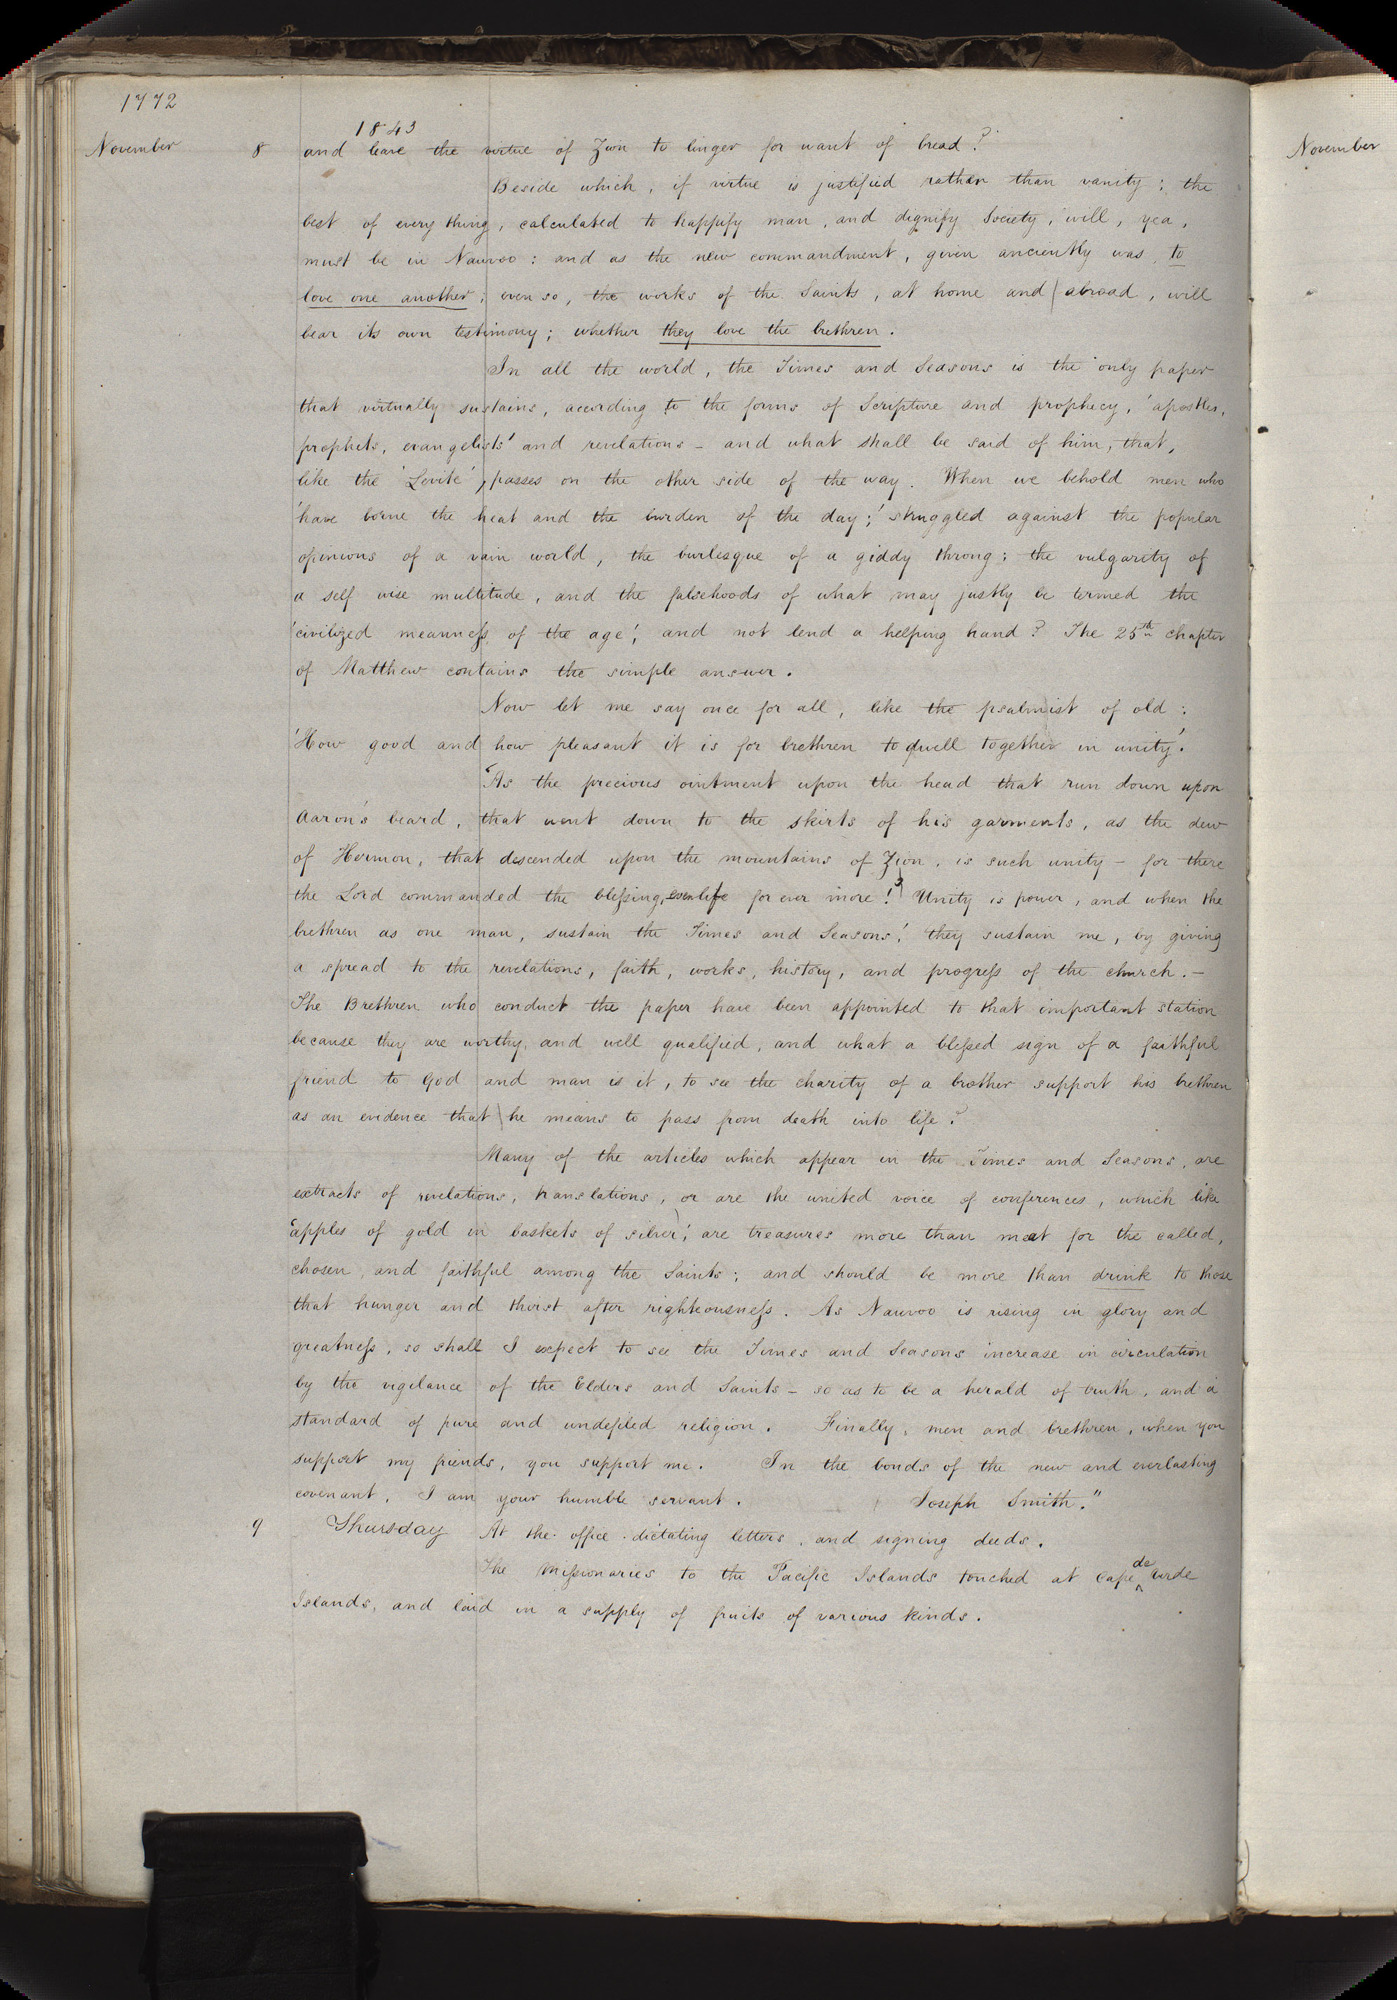 1772
1843
November 8 and leave the virtue of Zion to linger for want of bread?
Beside which, if virtue is justified rather than vanity; the
best of every thing, calculated to happify man, and dignify Society, will, yea,
must be in Nauvoo: and as the new commandment, given anciently was, to
love one another; even so, the works of the Saints, at home and abroad, will
bear its own testimony; whether they love the brethren.
In all the world, the Times and Seasons is the only paper
that virtually sustains, according to the forms of Scripture and prophecy, 'apostles,
prophets, evangelists' and revelations - and what shall be said of him, that,
like the 'Levite', passes on the other side of the way. When we behold men who
'have borne the heat and the burden of the day;' struggled against the popular
opinions of a vain world, the burlesque of a giddy throng; the vulgarity of
a self wise multitude, and the falsehoods of what may justly be termed the
'civilized meanness of the age'; and not lend a helping hand? The 25th chapter
of Matthew contains the simple answer.
Now let me say once for all, like the psalmist of old:
'How good and how pleasant it is for brethren to dwell together in unity.'
'As the precious ointment upon the head that run down upon
Aaron's beard, that went down to the skirts of his garments, as the dew
of Hermon, that descended upon the mountains of Zion, is such unity - for there
the Lord commanded the blessing, even life for ever more!' Unity is power, and when the
brethren as one man, sustain the Times and Seasons! they sustain me, by giving
a spread to the revelations, faith, works, history, and progress of the church. -
The Brethren who conduct the paper have been appointed to that important station
because they are worthy, and well qualified, and what a blessed sign of a faithful
friend to God and man is it, to see the charity of a brother support his brethren
as an evidence that he means to pass from death into life?
Many of the articles which appear in the Times and Seasons, are
extracts of revelations, translations, or are the united voice of conferences, which like
'apples of gold in baskets of silver'; are treasures more than meat for the called,
chosen, and faithful among the Saints; and should be more than drink to those
that hunger and thirst after righteousness. As Nauvoo is rising in glory and
greatness, so shall I expect to see the Times and Seasons increase in circulation
by the vigilance of the Elders and Saints - so as to be a herald of truth, and a
standard of pure and undefiled religion. Finally, men and brethren, when you
support my friends, you support me. In the bonds of the new and everlasting
covenant, I am your humble servant. Joseph Smith."
9 Thursday At the office dictating letters, and signing deeds.
The Missionaries to the Pacific Islands touched at Cape de verde
Islands, and laid in a supply of fruits of various kinds.
November